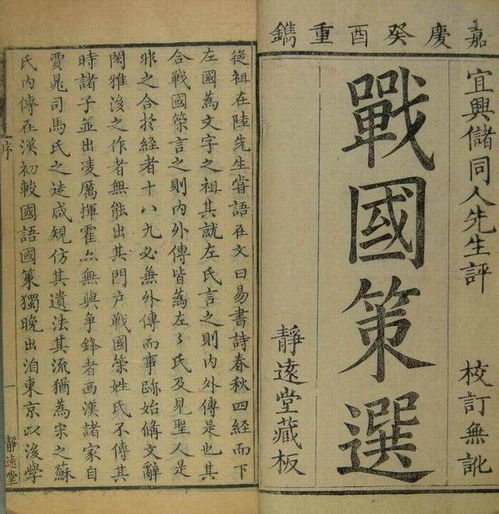 嘉慶癸酉重鐫
宜興儲同人先生評
校訂無訛
戰國策選
靜遠堂藏板
從祖在陸先生嘗語在文曰易書詩春秋四經而下
左國為文字之祖其就左氏言之則內外傳是也其
合戰國策言之則內外傳皆為左氏及見聖人是
非之合於經者十八九必無外傳而事跡始備文辭
閎雅後之作者無能出其門戶戰國策姓氏不傳
時諸子並出凌厲揮霍無與爭鋒者西漢諸家自
賈晁司馬氏之徒咸規仿其遺法其流猶為宋之蘇
氏內傳在漢初較國語國策獨晚出洎東京以後學
序
一
靜遠堂